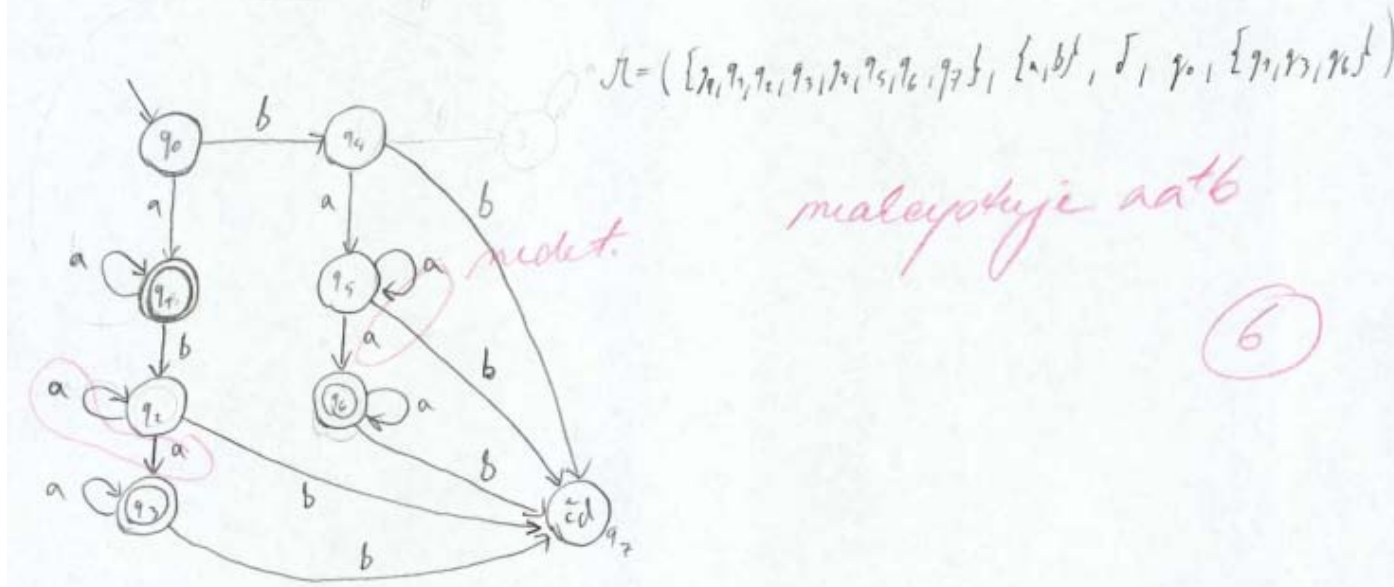 𝓜 = ( {q₀,q₁,q₂,q₃,q₄,q₅,q₆,q₇}, {a,b}, δ, q₀, {q₁,q₃,q₆} )
q₀ b q₄
a a b
a q₁ q₅ a nedet.
neakceptuje aa⁺b
b a b
6
a q₂ q₆ a
a b
a q₃ b čd q₇
b